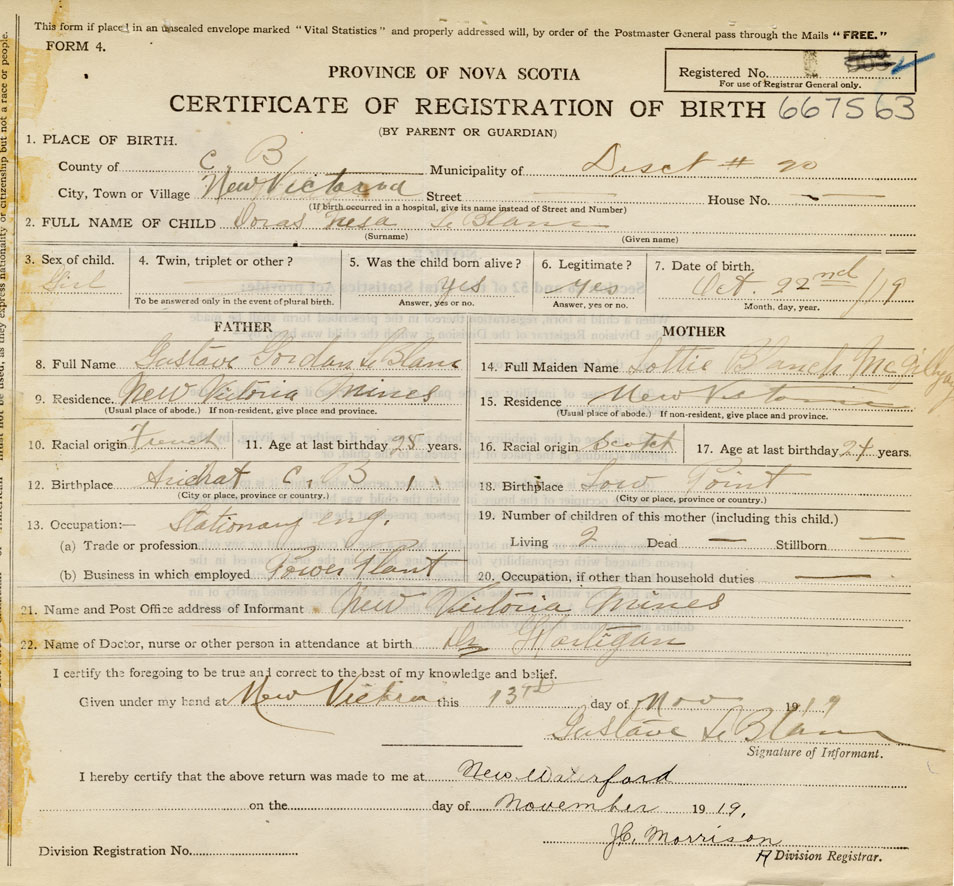 This form if placed in an unsealed envelope marked "Vital Statistics" and properly addressed will, by order of the Postmaster General pass through the Mails "FREE."
FORM 4.
PROVINCE OF NOVA SCOTIA
Registered No.
For use of Registrar General only.
CERTIFICATE OF REGISTRATION OF BIRTH 667563
(BY PARENT OR GUARDIAN)
1. PLACE OF BIRTH.
County of C. B Municipality of Disct # 20
City, Town or Village New Victoria Street House No.
(If birth occurred in a hospital, give its name instead of Street and Number)
2. FULL NAME OF CHILD Le Blanc
(Surname) (Given name)
3. Sex of child. 4. Twin, triplet or other? 5. Was the child born alive? 6. Legitimate? 7. Date of birth.
Girl yes yes Oct. 22nd /19
To be answered only in the event of plural birth. Answer, yes or no. Answer, yes or no. Month, day, year.
FATHER MOTHER
8. Full Name Gustave Gordan Le Blanc 14. Full Maiden Name Lottie Blanch
9. Residence. New Victoria Mines 15. Residence New Victoria
(Usual place of abode.) If non-resident, give place and province. (Usual place of abode.) If non-resident, give place and province.
10. Racial origin French 11. Age at last birthday 28 years. 16. Racial origin Scotch 17. Age at last birthday 24 years.
12. Birthplace Arichat C. B 18. Birthplace Low Point
(City or place, province or country.) (City or place, province or country.)
13. Occupation:— Stationary eng. 19. Number of children of this mother (including this child.)
(a) Trade or profession Living 2 Dead — Stillborn —
(b) Business in which employed Power Plant 20. Occupation, if other than household duties —
21. Name and Post Office address of Informant New Victoria Mines
22. Name of Doctor, nurse or other person in attendance at birth Dr Hartigan
I certify the foregoing to be true and correct to the best of my knowledge and belief.
Given under my hand at New Victoria this 13th day of Nov 1919
Gustave Le Blanc
Signature of Informant.
I hereby certify that the above return was made to me at New Waterford
on the day of November 1919.
J.C. Morrison
Division Registrar.
Division Registration No.